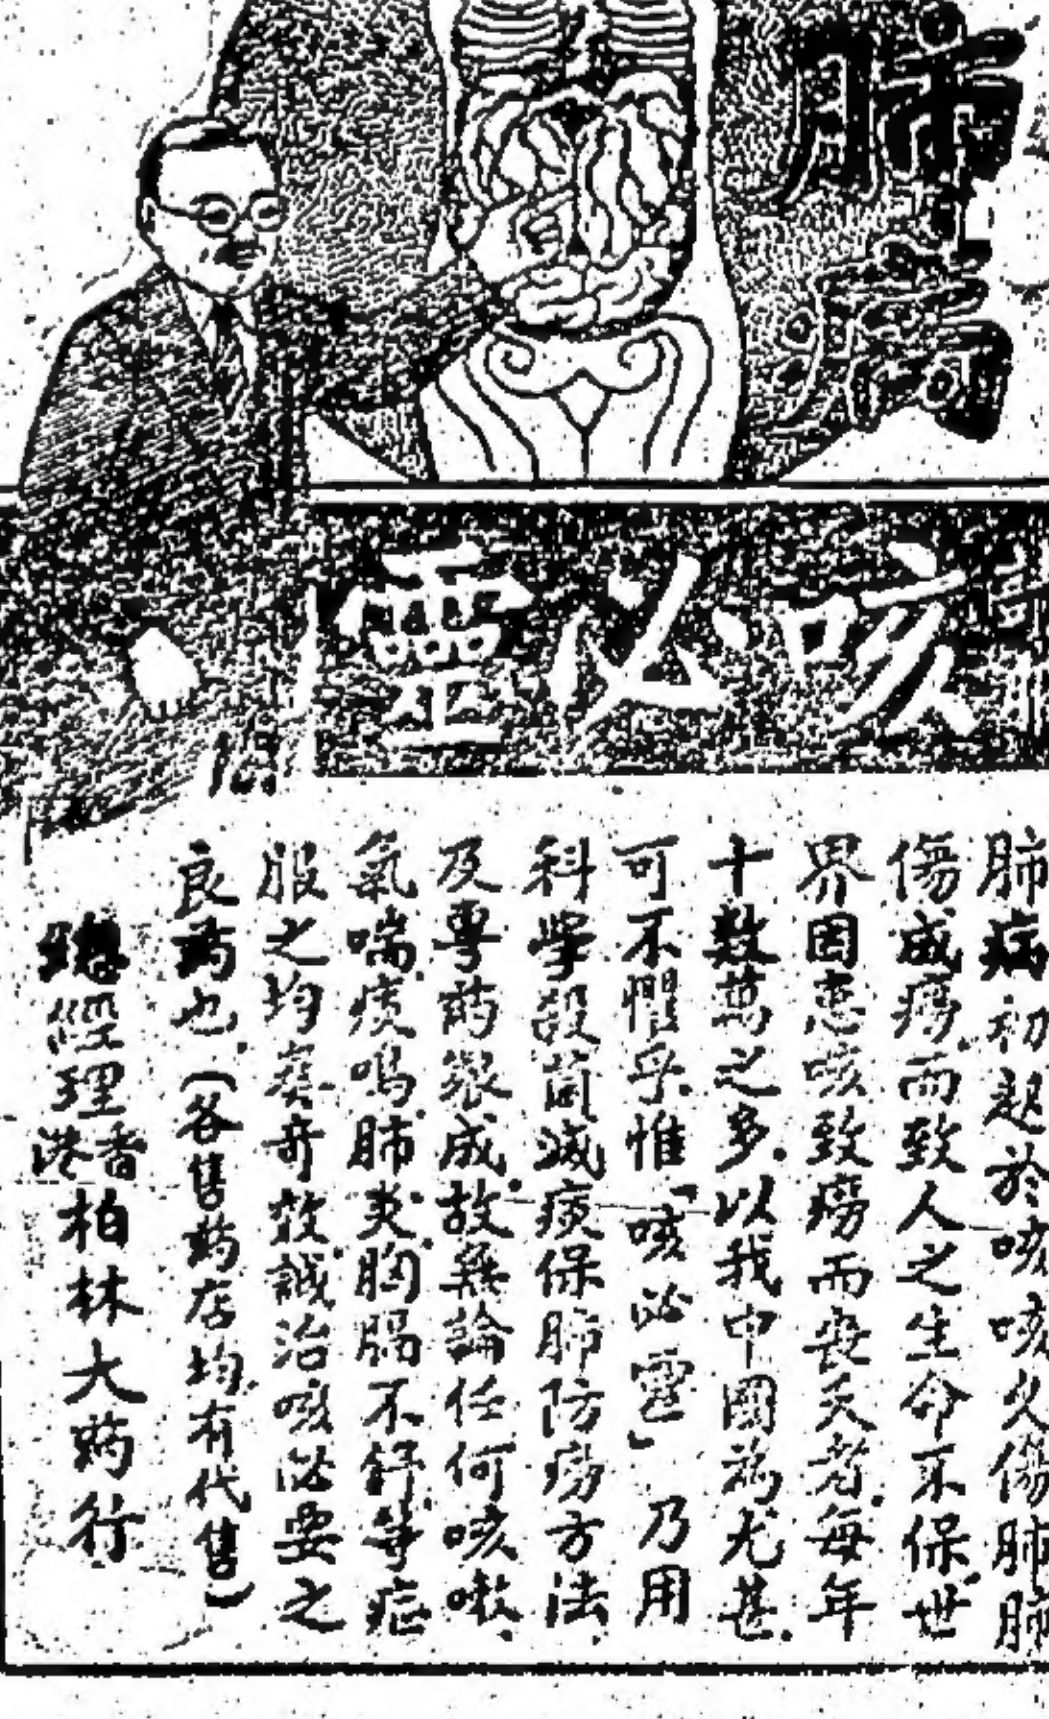 肺癆
咳必靈
肺病初起於咳咳久傷肺肺
傷成癆而致人之生命不保世
界因患咳致癆而喪夭者每年
十數萬之多以我中國為尤甚
可不懼乎惟「咳必靈」乃用
科學殺菌滅痰保肺防癆方法
及專药製成故無論任何咳嗽
氣喘痰鳴肺炎胸膈不舒等症
服之均奏奇效誠治咳必要之
良药也（各售药店均有代售）
總經理香港柏林大药行